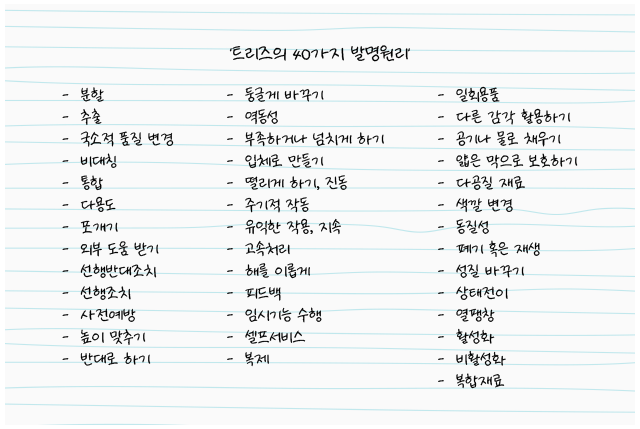 트리즈의 40가지 발명원리
- 분할
- 추출
- 국소적 품질 변경
- 비대칭
- 통합
- 다용도
- 포개기
- 외부 도움 받기
- 선행반대조치
- 선행조치
- 사전예방
- 높이 맞추기
- 반대로 하기
- 둥글게 바꾸기
- 역동성
- 부족하거나 넘치게 하기
- 입체로 만들기
- 떨리게 하기, 진동
- 주기적 작동
- 유익한 작용, 지속
- 고속처리
- 해를 이롭게
- 피드백
- 임시기능 수행
- 셀프서비스
- 복제
- 일회용품
- 다른 감각 활용하기
- 공기나 물로 채우기
- 얇은 막으로 보호하기
- 다공질 재료
- 색깔 변경
- 동질성
- 폐기 혹은 재생
- 성질 바꾸기
- 상태전이
- 열팽창
- 활성화
- 비활성화
- 복합재료